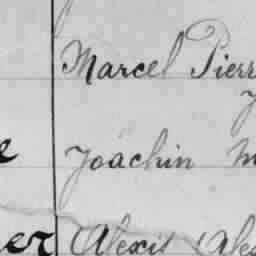 Marcel Pierr
e Joachin M
er Alexis (Alex